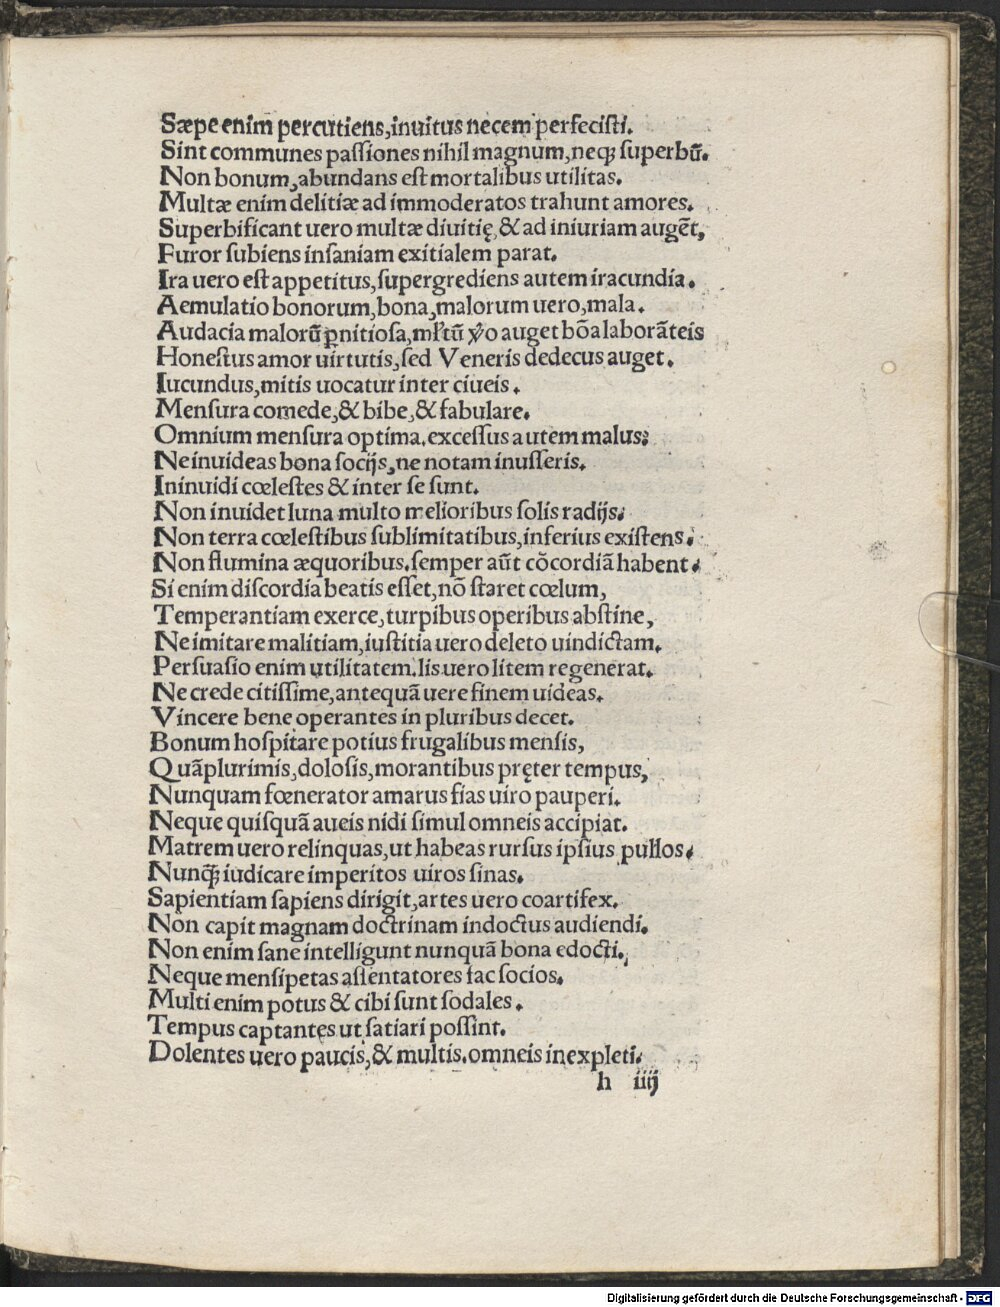 Sæpe enim percutiens,inuitus necem perfecisti.
Sint communes passiones nihil magnum,neqꝫ superbũ.
Non bonum,abundans est mortalibus utilitas.
Multæ enim delitiæ ad immoderatos trahunt amores.
Superbificant uero multæ diuitię,& ad iniuriam augẽt,
Furor subiens insaniam exitialem parat.
Ira uero est appetitus,supergrediens autem iracundia.
Aemulatio bonorum,bona,malorum uero,mala.
Audacia malorũ ꝑnitiosa,młtũ ỹo auget bõa laborãteis
Honestus amor uirtutis,sed Veneris dedecus auget.
Iucundus,mitis uocatur inter ciueis.
Mensura comede,& bibe,& fabulare.
Omnium mensura optima.excessus autem malus.
Ne inuideas bona socijs,ne notam inusseris.
Ininuidi cœlestes & inter se sunt.
Non inuidet luna multo melioribus solis radijs.
Non terra cœlestibus sublimitatibus,inferius existens.
Non flumina æquoribus.semper aũt cõcordiã habent.
Si enim discordia beatis esset,nõ staret cœlum,
Temperantiam exerce,turpibus operibus abstine,
Ne imitare malitiam,iustitia uero deleto uindictam.
Persuasio enim utilitatem.lis uero litem regenerat.
Ne crede citissime,antequã uere finem uideas.
Vincere bene operantes in pluribus decet.
Bonum hospitare potius frugalibus mensis,
Quãplurimis,dolosis,morantibus pręter tempus,
Nunquam fœnerator amarus fias uiro pauperi.
Neque quisquã aueis nidi simul omneis accipiat.
Matrem uero relinquas,ut habeas rursus ipsius pullos.
Nunqꝫ iudicare imperitos uiros sinas.
Sapientiam sapiens dirigit,artes uero coartifex.
Non capit magnam doctrinam indoctus audiendi.
Non enim sane intelligunt nunquã bona edocti.
Neque mensipetas assentatores fac socios.
Multi enim potus & cibi sunt sodales.
Tempus captantes ut satiari possint.
Dolentes uero paucis,& multis.omneis inexpleti.
h iiij
Digitalisierung gefördert durch die Deutsche Forschungsgemeinschaft - DFG